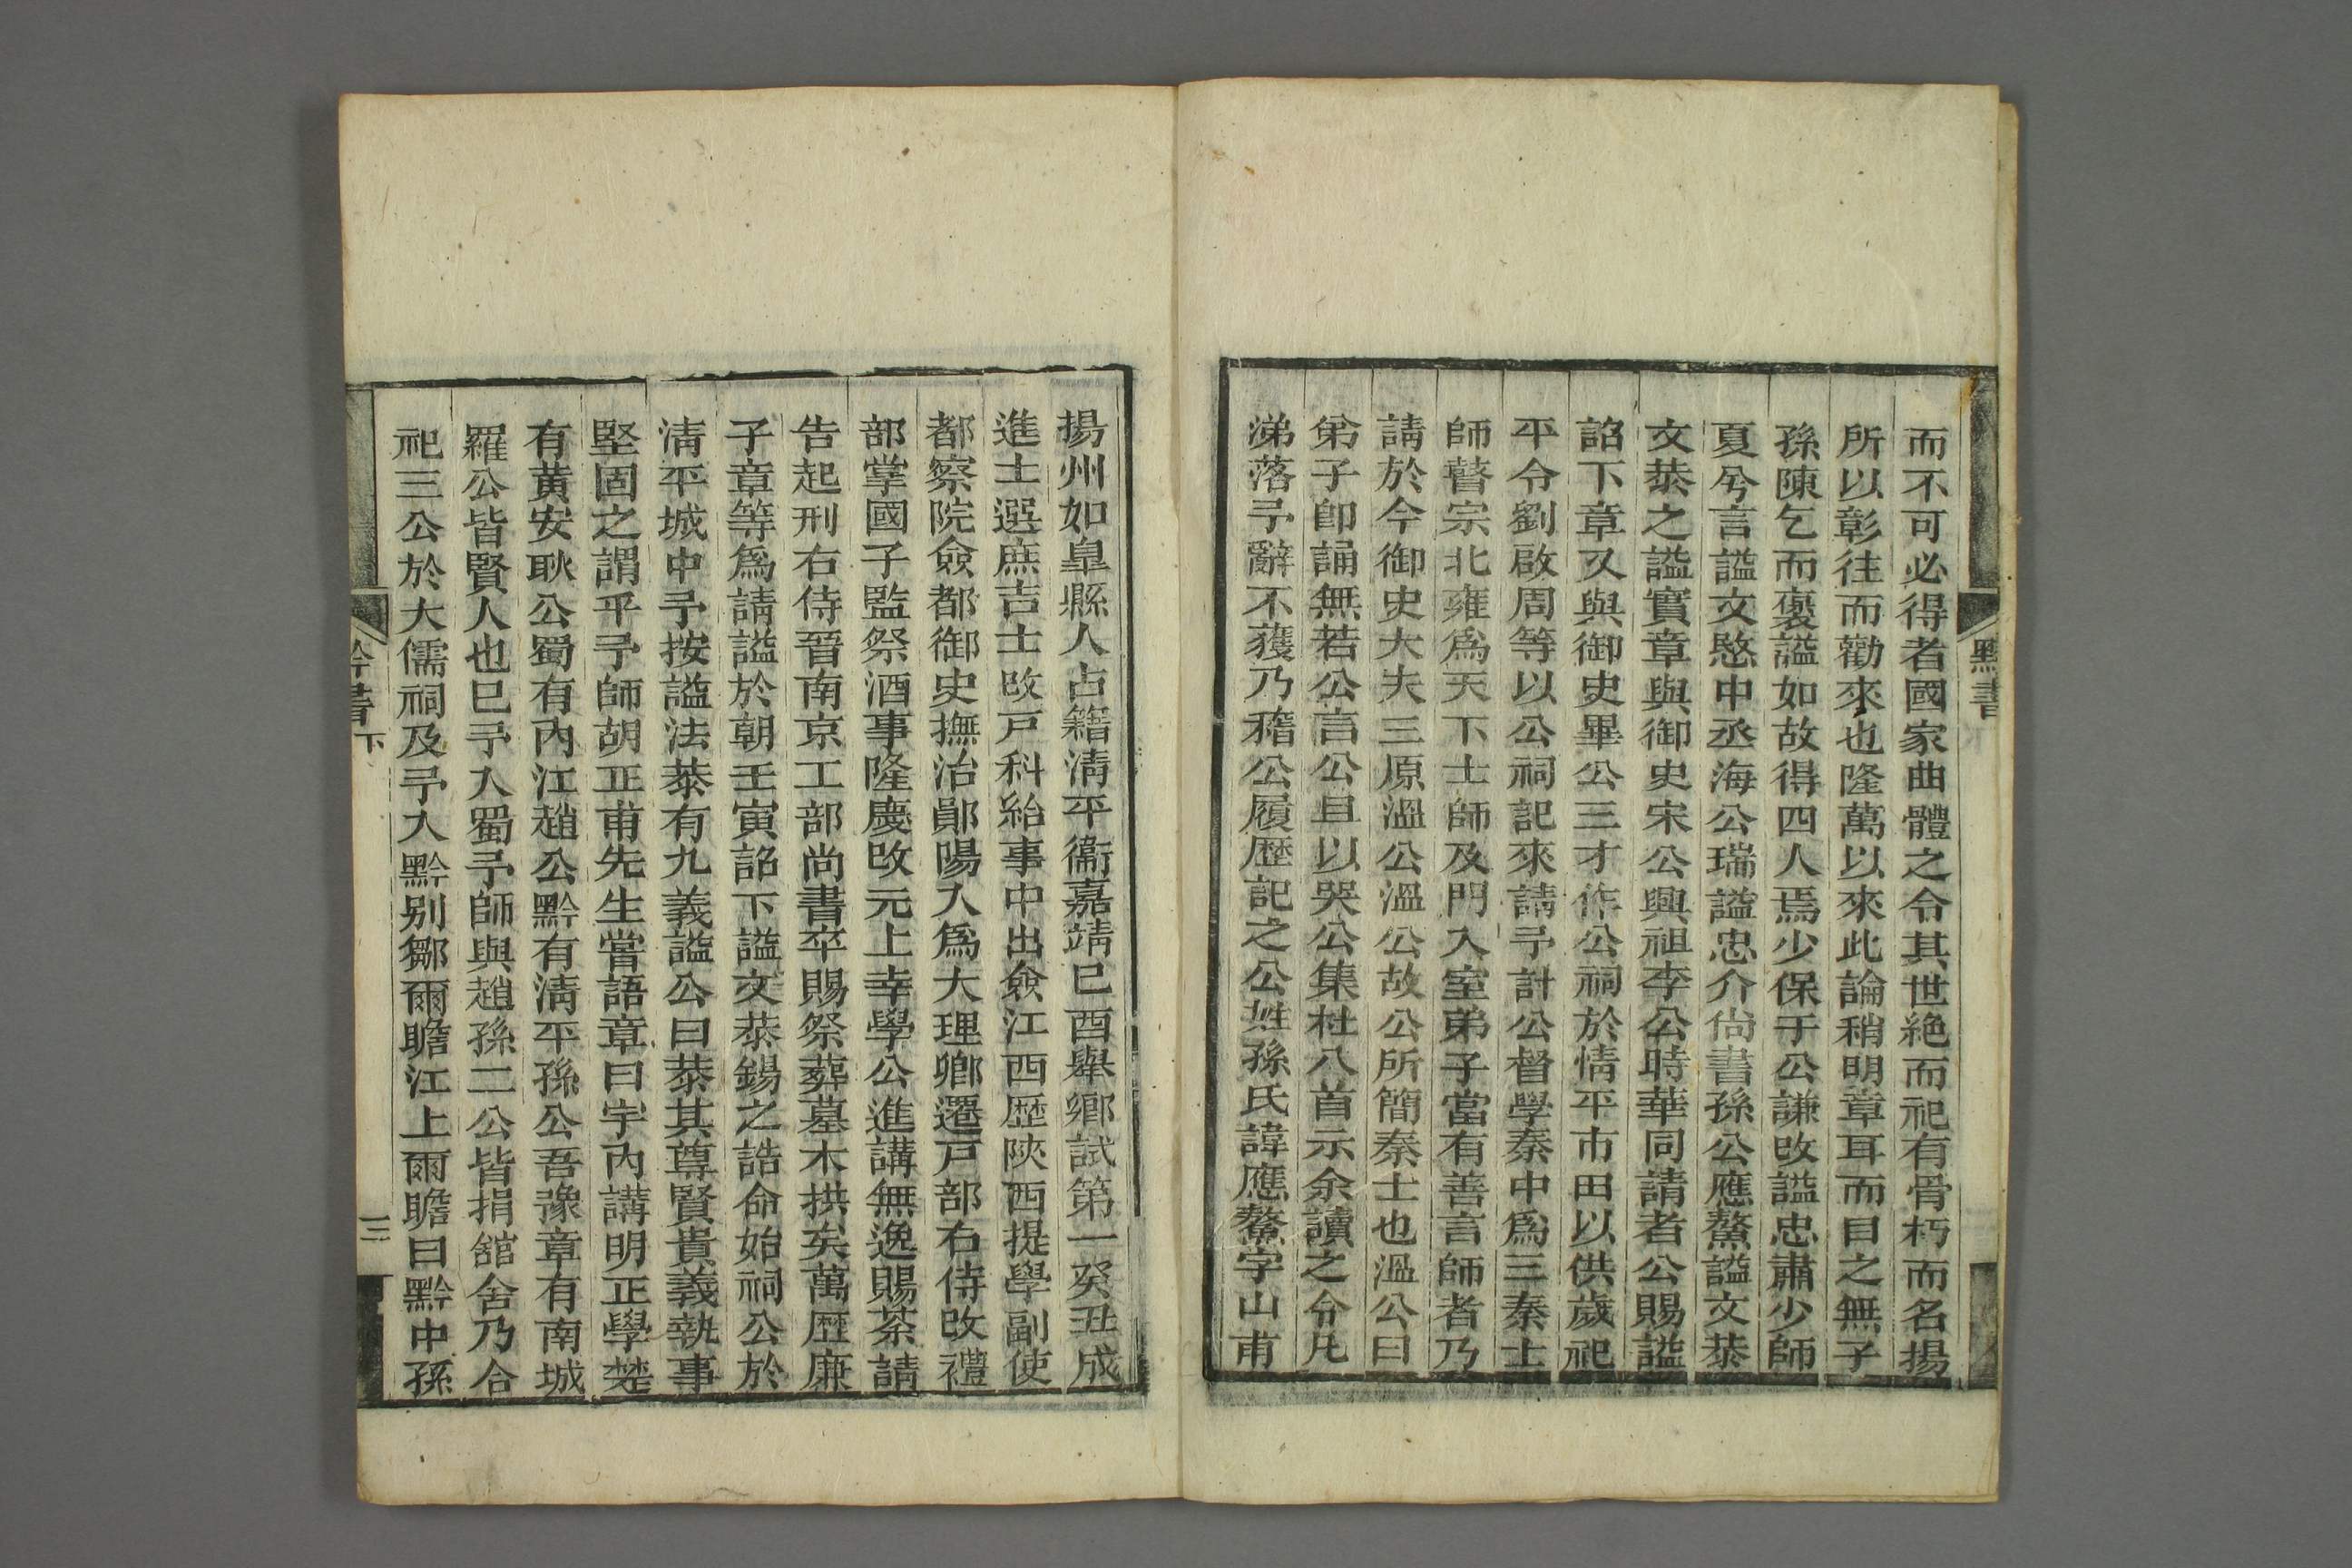 黔書
而不可必得者國家曲體之令其世絶而祀有骨朽而名揚
所以彰往而勸來也隆萬以來此論稍明章耳而目之無子
孫陳乞而褒謚如故得四人焉少保于公謙改謚忠肅少師
夏兮言謚文愍中丞海公瑞謚忠介尙書孫公應鰲謚文恭
文恭之謚實章與御史宋公興祖李公時華同請者公賜謚
詔下章又與御史畢公三才作公祠於情平市田以供歲祀
平令劉啟周等以公祠記來請予計公督學秦中爲三秦士
師瞽宗北雍爲天下士師及門入室弟子當有善言師者乃
請於今御史大夫三原溫公溫公故公所簡秦士也溫公曰
弟子卽誦無若公言公且以哭公集杜八首示余讀之令凡
涕落予辭不獲乃稽公履歷記之公姓孫氏諱應鰲字山甫
揚州如皐縣人占籍淸平衞嘉靖己酉舉鄉試第一癸丑成
進士選庶吉士改戸科給事中出僉江西歷陝西提學副使
都察院僉都御史撫治鄖陽入爲大理卿遷戸部右侍改禮
部掌國子監祭酒事隆慶改元上幸學公進講無逸賜茶請
告起刑右侍晉南京工部尚書卒賜祭葬墓木拱矣萬歷廉
子章等爲請謚於朝壬寅詔下謚文恭錫之誥命始祠公於
淸平城中予按謚法恭有九義謚公曰恭其尊賢貴義執事
堅固之謂乎予師胡正甫先生嘗語章曰宇內講明正學楚
有黃安耿公蜀有內江趙公黔有淸平孫公吾豫章有南城
羅公皆賢人也已予入蜀予師與趙孫二公皆捐舘舍乃合
祀三公於大儒祠及予入黔别鄒爾瞻江上爾瞻曰黔中孫
黔書 下 三